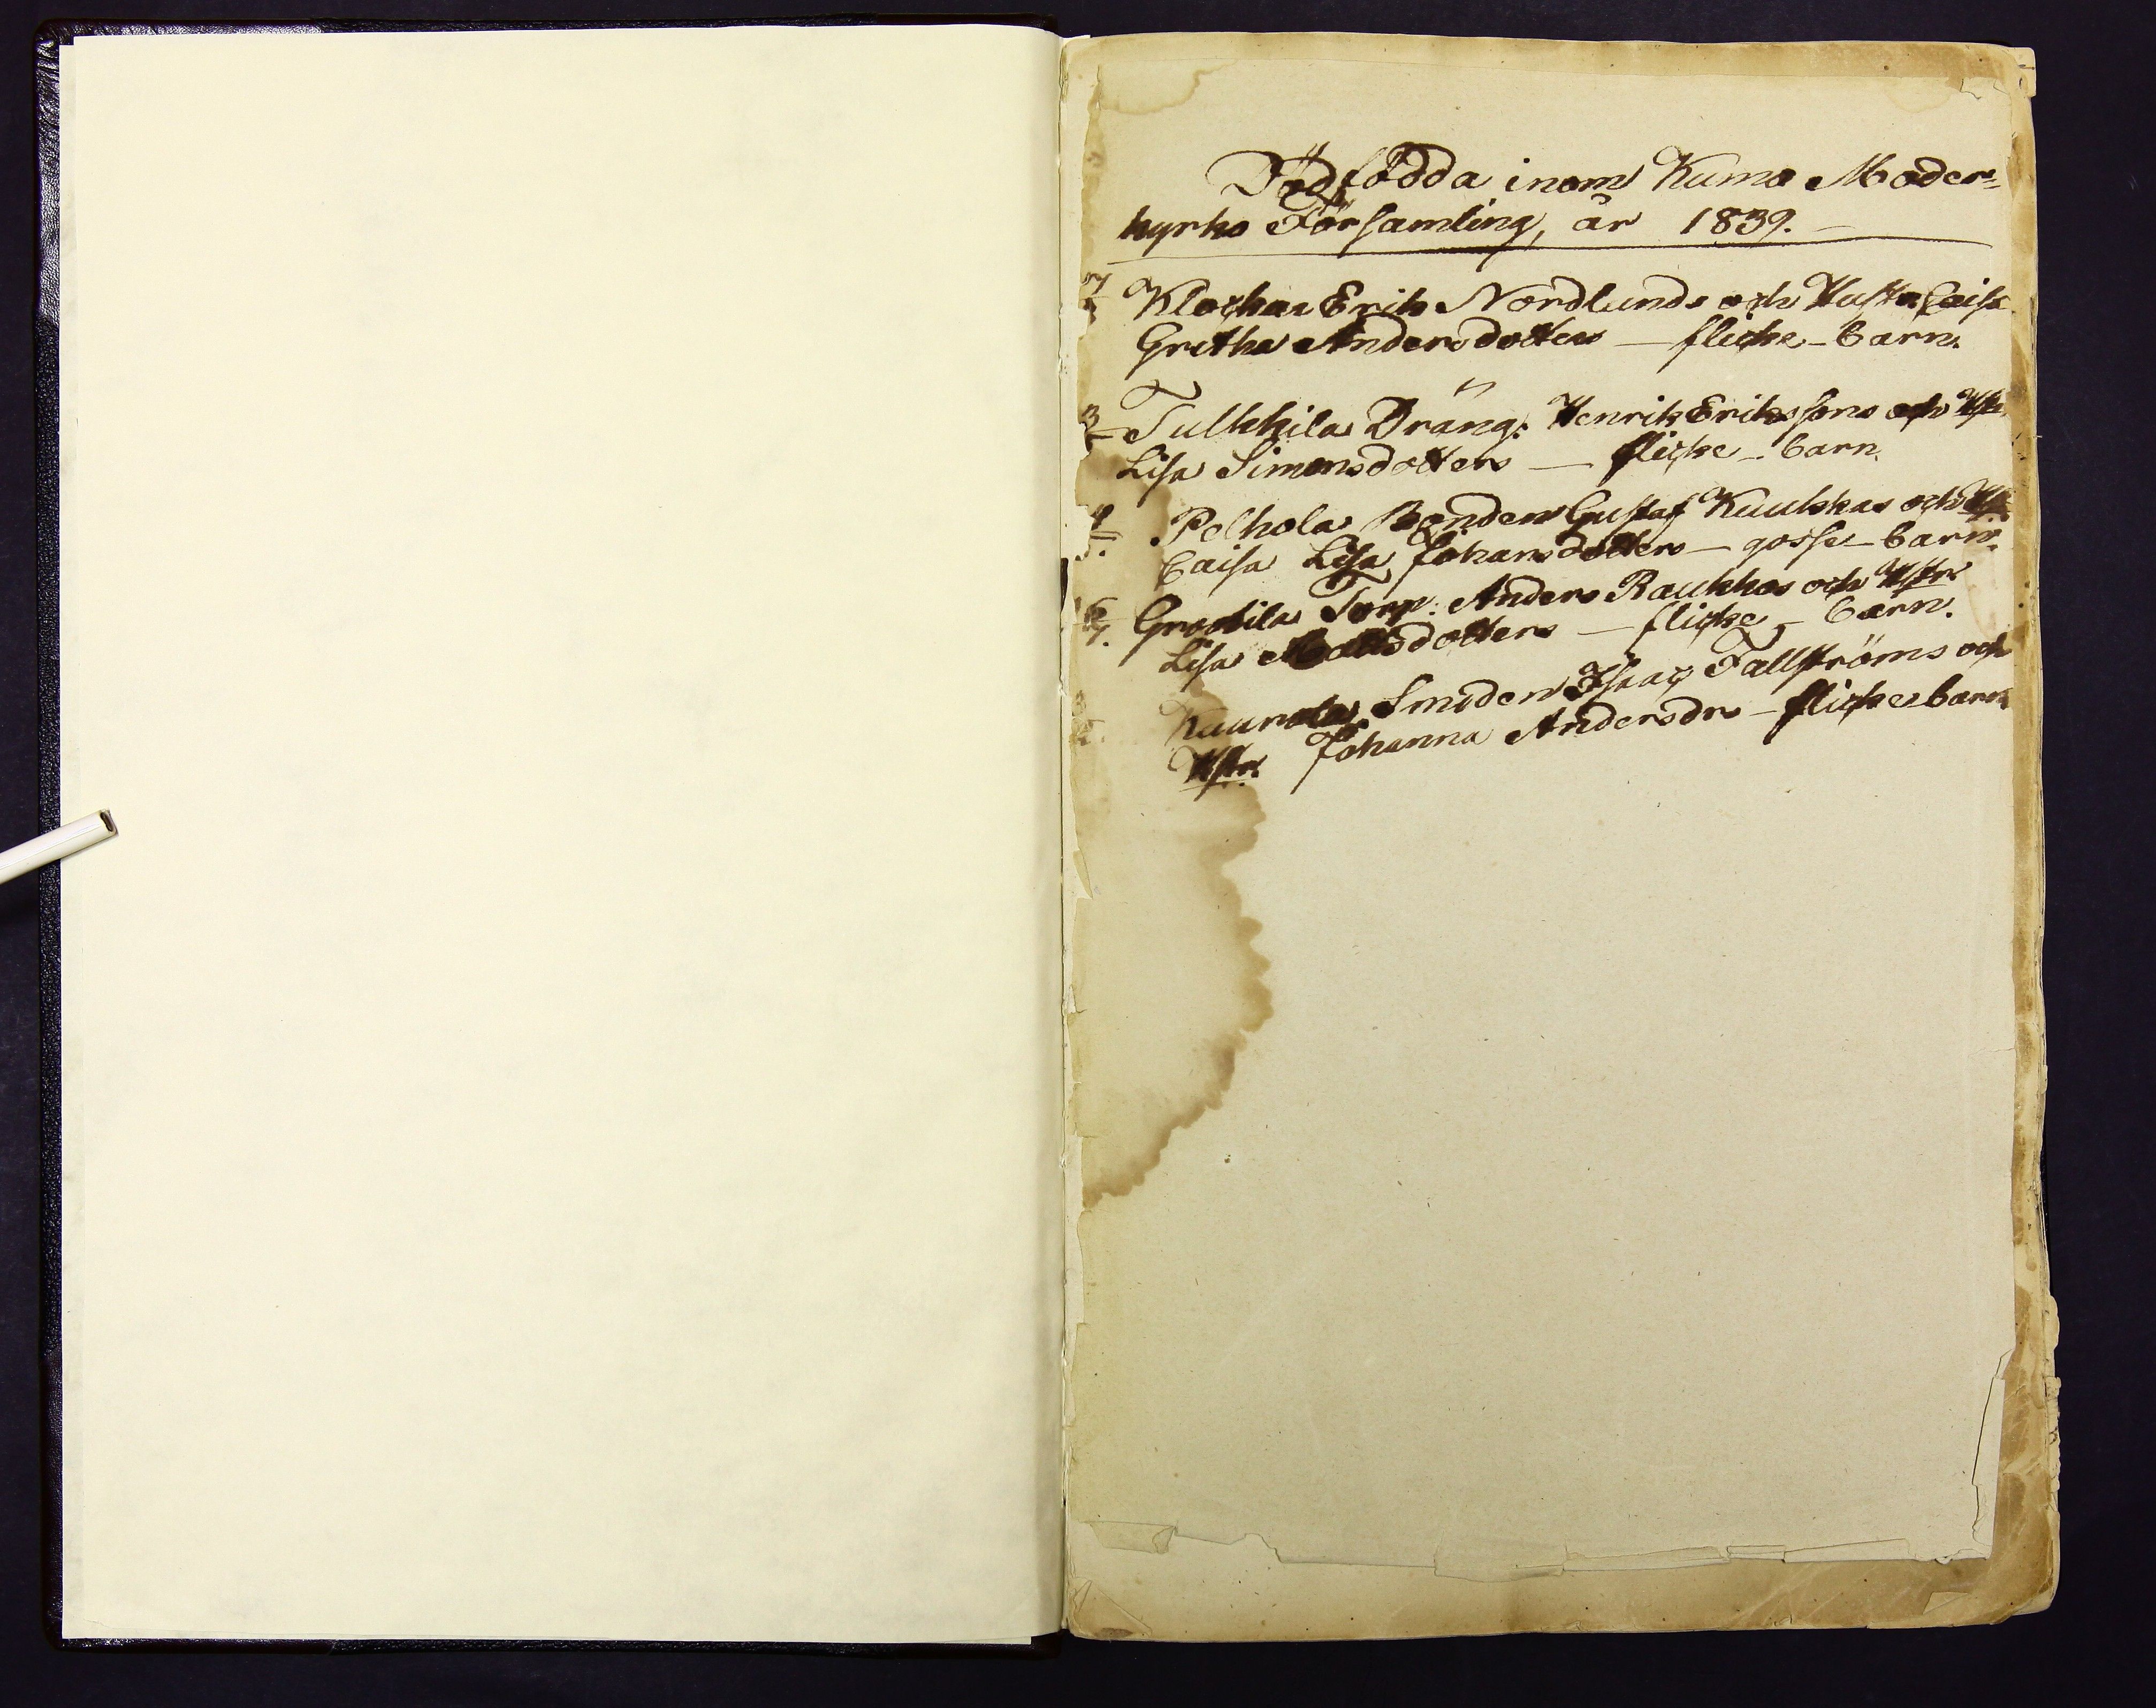 Dödfödda inom Kumo Moder-
kyrko Församling, år 1839.
Klockar Erik Nordlunds och Hustr. Caisa
Gretha Andersdotters – flicke-barn.
Tulkkila Dräng: Henrik Erikssons och Hst.
Lisa Simonsdotters – flicke-barn.
4 Pelhola Bonden Gustaf Kuukkas och Hst.
Caisa Lisa Johansdotters – gosse-barn.
Grootila Torp: Anders Raukkas och Hstr.
Lisa Mattsdotters – flicke-barn.
Smeden Isaac Fallströms och
Hstr. Johanna Andersdrs – flicke barn